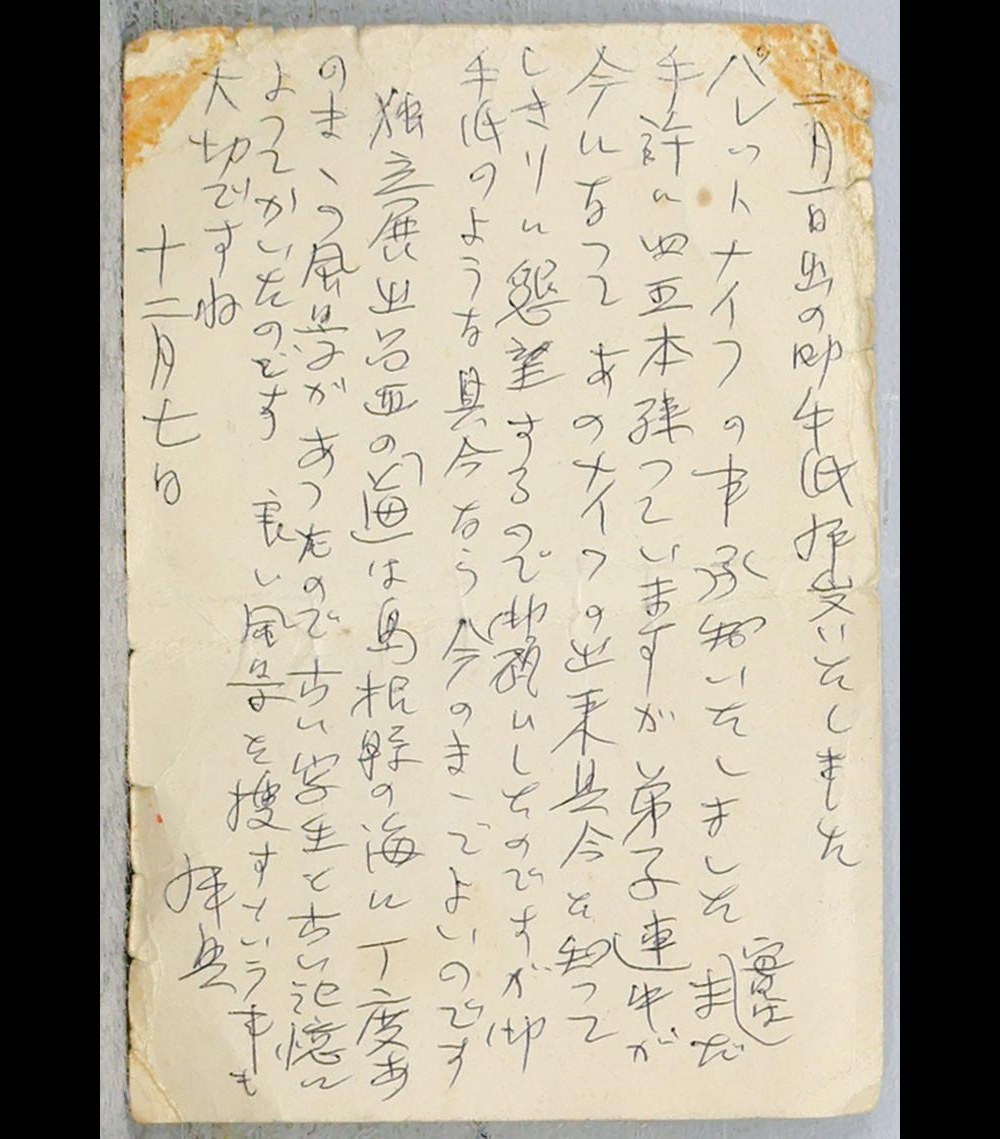 十二月一日出の御手紙拝受いたしました
パレットナイフの事承知いたしました 実は まだ
手許に四五本残つていますが 弟子連中が
今になつて あのナイフの出来具合を知つて
しきりに懇望するので御願いしたのですが 御
手紙のような具合なら 今のまゝでよいのです
独立展出品画の「海」は島根県の海に丁度あ
のまゝの風景があつたので古い写生と古い記憶に
よつてかいたのです 良い風景を捜すという事も
大切ですね
十二月七日 拝具